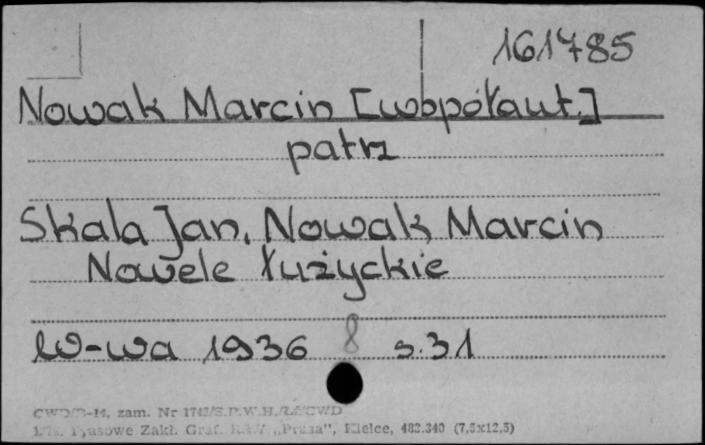 161785
Nowak Marcin [współaut.]
patrz
Skala Jan, Nowak Marcin
Nowele łużyckie
W-wa 1936 8 s. 31
zam. Nr
Prasowe Zakł. Graf. RSW „Prasa”, Kielce, 483.340 (7,5x12,5)